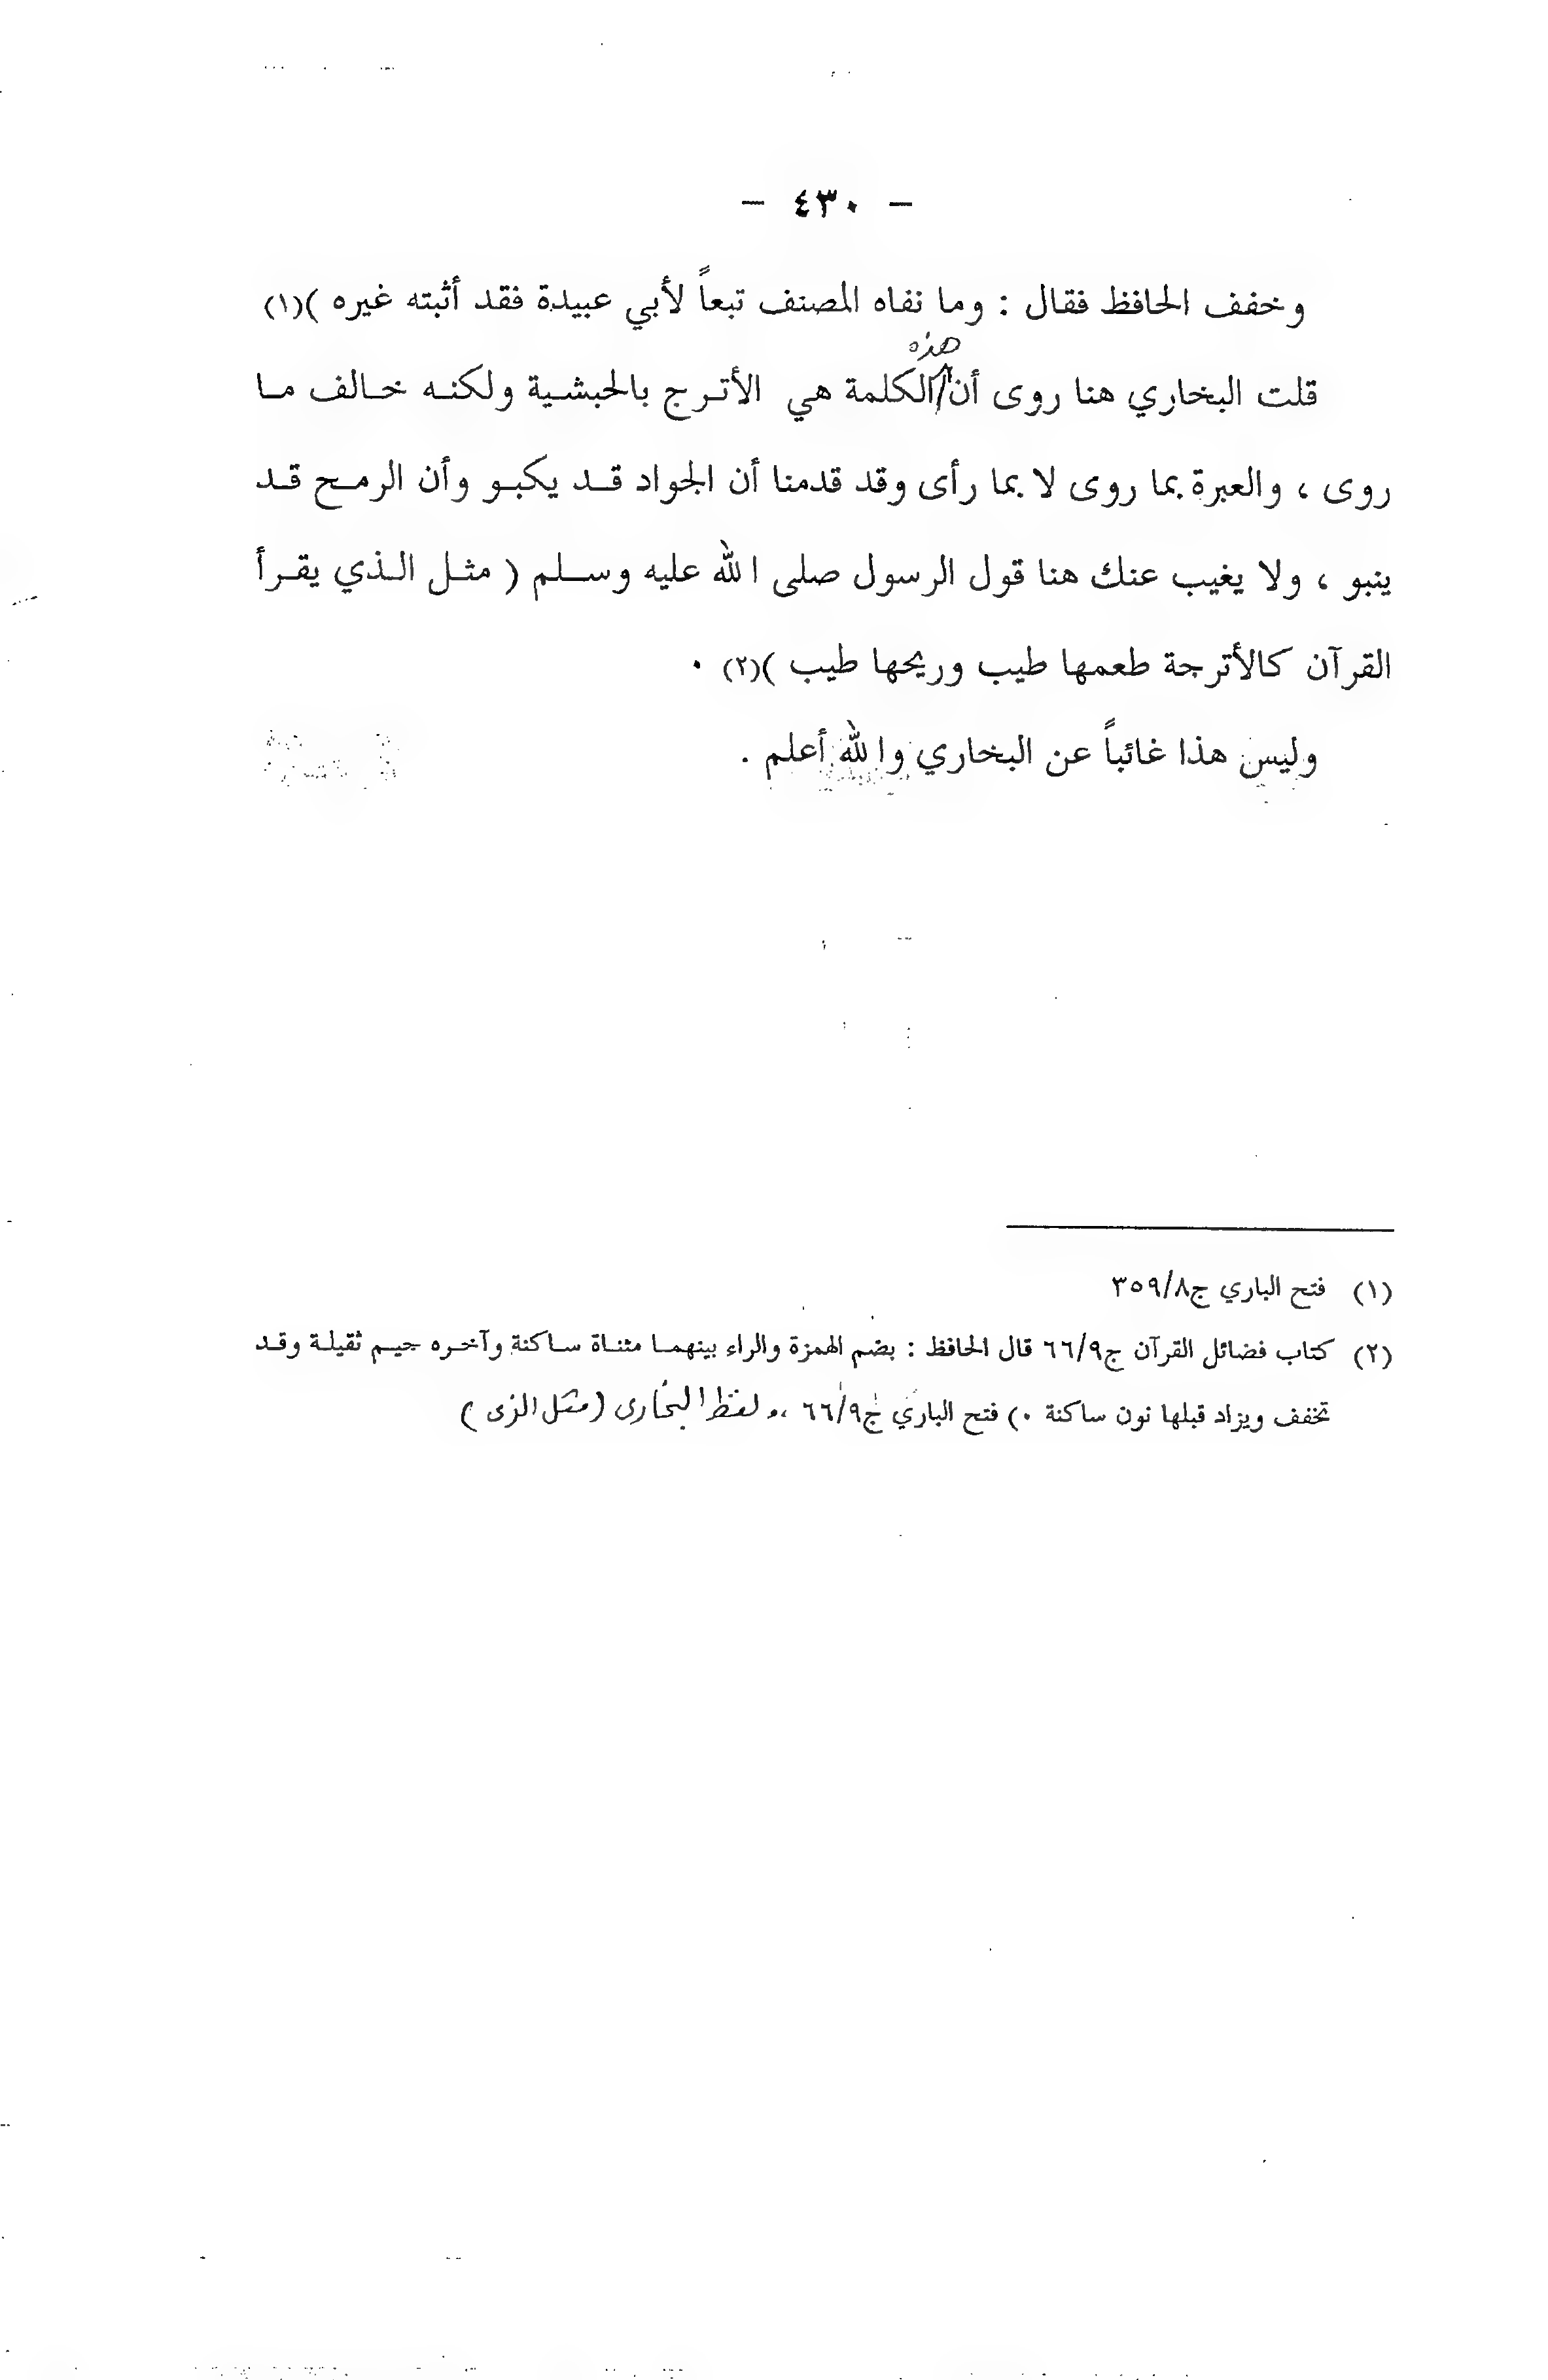 - ٤٣٠ -
وخفف الحافظ فقال : وما نفاه المصنف تبعاً لأبي عبيدة فقد أثبته غيره )(١)
قلت البخاري هنا روى أن هذه الكلمة هي الأترج بالحبشية ولكنه خالف ما
روى ، والعبرة بما روى لا بما رأى وقد قدمنا أن الجواد قد يكبو وأن الرمح قد
ينبو ، ولا يغيب عنك هنا قول الرسول صلى الله عليه وسلم ( مثل الذي يقرأ
القرآن كالأترجة طعمها طيب وريحها طيب )(٢) .
وليس هذا غائباً عن البخاري والله أعلم .
(١) فتح الباري ج٣٥٩/٨
(٢) كتاب فضائل القرآن ج٦٦/٩ قال الحافظ : بضم الهمزة والراء بينهما مثناة ساكنة وآخره جيم ثقيلة وقد
تخفف ويزاد قبلها نون ساكنة .) فتح الباري ج٦٦/٩ ، ولفظ البخارى (مثل الذى )